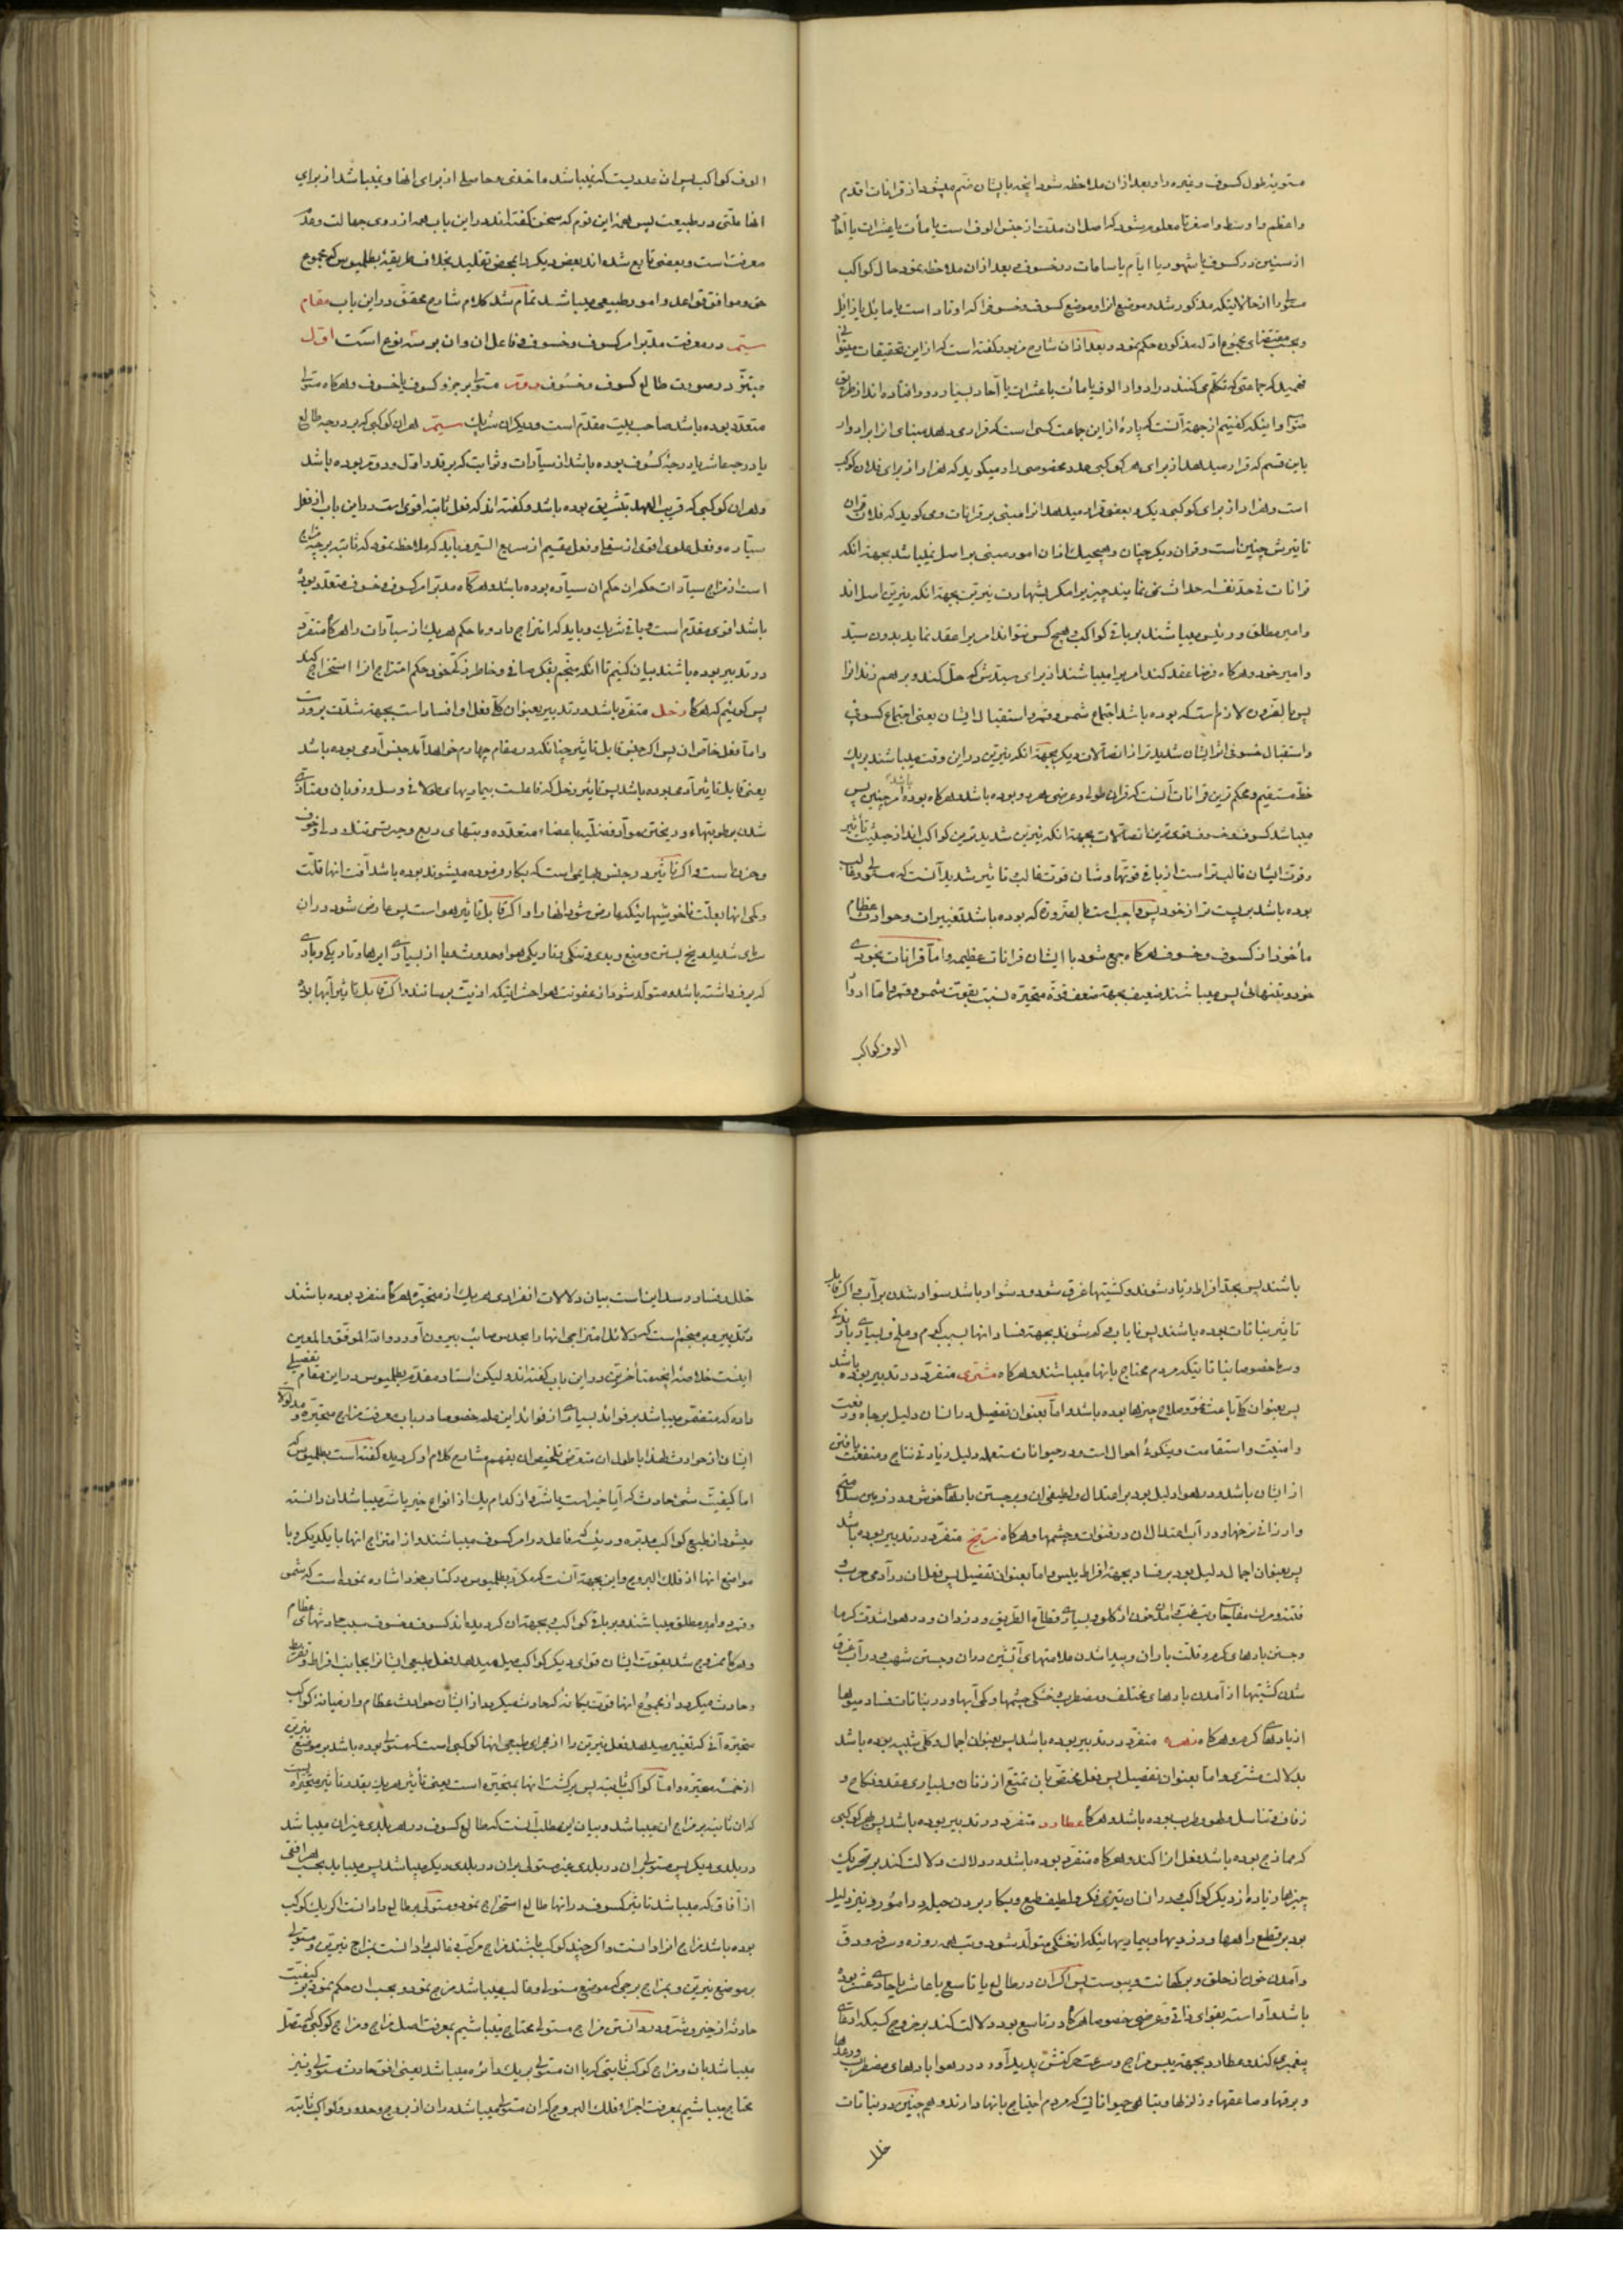 مستوبه طول کسوف و غیره را و بعد از آن ملاحظه شود آنچه با ایشان منضم میشود از قرانات اقدم
و اعظم و اوسط و اصغر تا معلوم شود که اصل آن مدت از جنس الوف است یا مأت یا عشرات یا آحاد
از سنین در کسوف یا شهور یا ایام یا ساعات در خسوف و بعد از آن ملاحظه نمود حال کواکب
را از حالاتیکه مذکور شد و موضع انرا و موضع کسوف و خسوف را که اوتاد است یا مایل یا زایل
و بعد از آن شارح مزبور گفته است که از این تحقیقات
که جماعتی که تکلم می کنند در ادوار الوف یا مأت یا عشرات یا آحاد بسیار دور افتاده اند از طریق
و اینکه گفتیم از جهة آنست که پارهٔ از این جماعت کسی است که قرار می دهد مبنای از ابر ادوار
باین قسم که قرار میدهد از برای هر کوکبی عدد مخصوصی را و میگوید که هزار از برای فلان کوکب
است و هزار از برای کوکبی دیگر و بعضی قرار میدهد انرا مبنی بر قرانات و می گوید که فلان قران
تاثیرش چنین است و قران دیگر چنان و هیچیک از آن امور مبنی بر اصل نمیباشد بجهة آنکه
قرانات فی حد نفسه احداث نمی نمایند چیزیرا مگر بشهادت نیرین بجهة آنکه نیرین اصل اند
و امیر مطلق و رئیس میباشند بر باقی کواکب و هیچ کس نتواند امریرا عقد نماید بدون سید
و امیر خود و هرگاه فرضا عقد کند امریرا میباشند از برای سیدش که حل کند و برهم زند انرا
پس بالضرورة لازم است که بوده باشد اجتماع شمس و قمر و استقبال ایشان یعنی اجتماع کسوفی
و استقبال خسوفی اثر ایشان شدیدتر از اتصالات دیگر بجهة آنکه نیرین در این وقت میباشند بر یک
خط مستقیم و محکم ترین قرانات آنست که قران طولی و عرضی هر دو بوده باشد و هرگاه بوده باشد امر چنین پس
میباشد کسوف و خسوف قوی ترین اتصالات بجهة آنکه نیرین شدیدترین کواکب اند از حیثیت تأثیر
و قوت ایشان غالب تر است از باقی قوتها و شان قوت غالب تاثیر شدید آنست که مستولی و غالب
بوده باشد بر پست تر از خود پس واجب است بالضرورة که بوده باشد تغییرات و حوادث عظام
مأخوذ از کسوف و خسوف هرگاه جمع شود با ایشان قرانات عظیمه و اما قرانات بخودی
خود و بتنهائی پس میباشند ضعیف بجهة ضعف قوة متحیره نسبت بقوت شمس و قمر و اما ادوار
الوف کواکب
الوف کواکب پس آن عددیست که نمیباشد ماخذی و حاصلی از برای انها و نمیباشد از برای
انها علتی در طبیعت پس همهٔ این قوم که سخن گفته اند در این باب همه از روی جهالت و عدم
معرفت است و بعضی تابع شده اند بعض دیگر را بمحض تقلید بخلاف طریقهٔ بطلمیوس که مجموع
حق و موافق قواعد و امور طبیعی میباشد تمام شد کلام شارح محقق در این باب مقام
سیم در معرفت مدبر امر کسوف و خسوف و فاعل آن و آن بر سه نوع است اول
مبتز در صورت طالع کسوف و خسوف دویم مستولی بر جزو کسوف یا خسوف و هرگاه مستولی
متعدد بوده باشد صاحب بیت مقدم است و دیگران شریک سیم هر آن کوکبی که در درجهٔ طالع
یا درجهٔ عاشر یا درجهٔ کسوف بوده باشد از سیارات و ثوابت که بر قدر اول و دویم بوده باشد
و هر آن کوکبی که قریب العهد بتشریق بوده باشد و گفته اند که فعل ثابته اقوی است در این باب از فعل
سیاره و فعل علوی اقوی از سفلی و فعل مقیم از سریع السیر و باید که ملاحظه نمود که ثابته بر چه مزاج
است از مزاج سیارات حکم آن حکم آن سیاره بوده باشد و هرگاه مدبر امر کسوف و خسوف متعدد بوده
باشد اقوی مقدم است و باقی شریک و باید که امتزاج داد و ما حکم هر یک از سیارات را هرگاه متفرد
در تدبیر بوده باشند بیان کنیم تا آنکه منجم بفکر صافی و خاطر زکی خود حکم امتزاج انرا استخراج کند
پس گوئیم که هرگاه زحل متفرد باشد در تدبیر بعنوان کلی فعل او افساد است بجهة شدت برودت
و اما فعل خاص آن پس اگر جنس قابل تاثیر چنانکه در مقام چهارم خواهد آمد جنس آدمی بوده باشد
یعنی قابل تاثیر آدمی بوده باشد پس تاثیر زحل که فاعلست بیماریهای و سل و ذوبان و متأذی
شدن برطوبتها و ریختن مواد فضلیه باعضاء متعدده و تبهای ربع و و خوف
و حزن است و اگر تاثیر در جنس بهایمی است که بکار فرموده میشوند بوده باشد آفت انها قلت
و کمی انها بعلت ناخوشیهائیکه عارض شود انها را و اگر قابل تاثیر هوا است پس عارض شود در آن
سرمای شدید و یخ بستن و میغ و بدی و تنکی و تاریکی هوا و حدوث وبا از بسیاری ابرها و تاریکی و بادی
که برف داشته باشد و متولد شود از عفونت هوا حشراتیکه اذیت برسانند و اگر قابل تاثیر آبها بوده
باشند پس بحد افراط زیاد شوند و کشتیها غرق شود و دشوار باشد سوار شدن بر آب و اگر قابل
تاثیر نباتات بوده باشند پس نایاب و کم شوند بجهة فساد انها بسبب کرم و ملخ و بسیاری باران
و سرما خصوصا نباتاتیکه مردم محتاج بانها میباشند و هرگاه مشتری متفرد در تدبیر بوده باشد
پس بعنوان کلی باعث نمو و صلاح چیزها بوده باشد و اما بعنوان تفصیل در انسان دلیل بر جاه و رفعت
و امنیت و استقامت و نیکوئی احوال است و در حیوانات مستعمله دلیل زیادتی نتاج و منفعت یافتن
از ایشان باشد و در هوا دلیل بود بر اعتدال و لطیفی آن و برجستن بادهای خوش و در زمین سلامتی
و ارزانی نرخها و در آب اعتدال آن در قنوات و چشمها و هرگاه مریخ متفرد در تدبیر بوده باشد
پس بعنوان اجمال دلیل بود بر فساد بجهة افراط یبس و اما بعنوان تفصیل پس فعل آن در آدمی حرب و
فتنه و مرک مفاجا و تب و آمدن خون از گلو و بسیاری قطاع الطریق و دزدان و در هوا شدت گرما
و جستن بادهای گرم و قلت باران و پیدا شدن علامتهای آتشین در آن و جستن شهب و در آب غرق
شدن کشتیها از آمدن بادهای مختلف و مضطرب و خشکی چشمها و کمی آبها و در نباتات فساد میوها
از بادهای گرم و هرگاه زهره متفرد در تدبیر بوده باشد پس بعنوان اجمال و کلی شبیه بوده باشد
بدلالت مشتری و اما بعنوان تفصیل پس فعل مختص بان تمتع از زنان و بسیاری عقد و نکاح و
زفاف و تناسل و لهو و طرب بوده باشد و هرگاه عطارد متفرد در تدبیر بوده باشد پس بهر کوکبی
که ممازج بوده باشد فعل انرا کند و هرگاه متفرد بوده باشد در دلالت دلالت کند بر تحریک
چیزها زیاده از دیگر کواکب و در انسان تیزی فکر و لطیف طبع و بکار بردن حیله در امور و نیز دلیل
بود بر قطع راهها و دزدیها و بیماریهائیکه از خشکی متولد شود و تب هر روزه و سرفه و دق
و آمدن خون از حلق و بر کهانت و یبوست پس اگر آن در طالع یا تاسع یا عاشر یا حادی عشر بوده
باشد و آراسته بقوای ذاتی و عرضی خصوصا هرگاه در تاسع بود دلالت کند بر خروج کسیکه ادعای
پیغمبری کند و عطارد بجهة یبس مزاج و سرعت حرکتش پدید آورد در هوا بادهای مضطرب و رعدها
و برقها و صاعقها و زلزلها و تباهی حیواناتیکه مردم احتیاج بانها دارند و همچنین در نباتات
خلل
خلل و فساد رسد این است بیان دلالات انفرادی هر یک از متحیره هرگاه متفرد بوده باشند
در تدبیر و بر منجم است که دلائل امتزاجی انها را بحدس صائب بیرون آورد والله الموفق والمعین
اینست خلاصهٔ آنچه متأخرین در این باب گفته اند و لیکن استاد مقدم بطلمیوس در این مقام تفصیلی
داده که متضمن میباشد بر فوائد بسیاری از فوائد این علم خصوصا در باب معرفت مزاج متحیره و مدلولات
ایشان از حوادث لهذا با طول آن متعرض تلخیص آن بفهم شارح کلام او گردیده گفته است بطلمیوس که
اما کیفیت شیء حادث که آیا خیر است یا شر و از کدام یک از انواع خیر یا شر میباشد آن دانسته
میشود از طبع کواکب مدبره و رئیسه که فاعل در امر کسوف میباشند و از امتزاج انها با یکدیگر و با
مواضع انها از فلک البروج و این بجهة آنست که مکرر بطلمیوس در کتاب خود اشاره نموده است که شمس
و قمر دو امیر مطلق میباشند و بر باقی کواکب و بجهة آن گردیده اند کسوف و خسوف سبب حادثهای عظام
و هرگاه ممزوج شد بقوت ایشان قوای دیگر کواکب میل میدهد فعل طبیعی ایشانرا بجانب افراط و تفریط
و حادث میگردد از مجموع انها قوت یکانه که حادث میگردد از ایشان حوادث عظام و از میانه کواکب
متحیره آنی که تغییر میدهد فعل نیرین را از مجرای طبیعی انها کوکبی است که مستولی بوده باشد بر موضع نیرین
از خمسه متحیره و اما کواکب ثابته پس برگشت انها بمتحیره است یعنی تأثیر هر یک بقدر تأثیر متحیره ایست
که آن ثابته بر مزاج آن میباشد و بیان این مطلب آنست که طالع کسوف در هر بلدی غیر آن میباشد
در بلدی دیگر پس مستولی بر آن در بلدی غیر مستولی بر آن در بلدی دیگر میباشد پس میباید بحسب هر افقی
از آفاق که میباشد تاثیر کسوف در انها طالع استخراج نمود و مستولی بر طالع را دانست اگر یک کوکب
بوده باشد مزاج انرا دانست و اگر چند کوکب باشند مزاج مرکب غالب را دانست بمزاج نیرین و مستولی
بر موضع نیرین و بمزاج برجی که موضع مستولی و غالب میباشد مزج نمود و بحسب آن حکم نمود بر کیفیت
حادثه از خیر و شر و در دانستن مزاج مستولی محتاج میباشیم بمعرفت اصل مزاج و مزاج کوکبی که متصل
میباشد بان و مزاج کوکب ثابتی که با آن مستولی بر یک دائره میباشد یعنی افق حادث مستولی و نیز
محتاج میباشیم بمعرفت اجزاء فلک البروج که آن مستولی میباشد در آن از بروج و حدود و کواکب ثابته